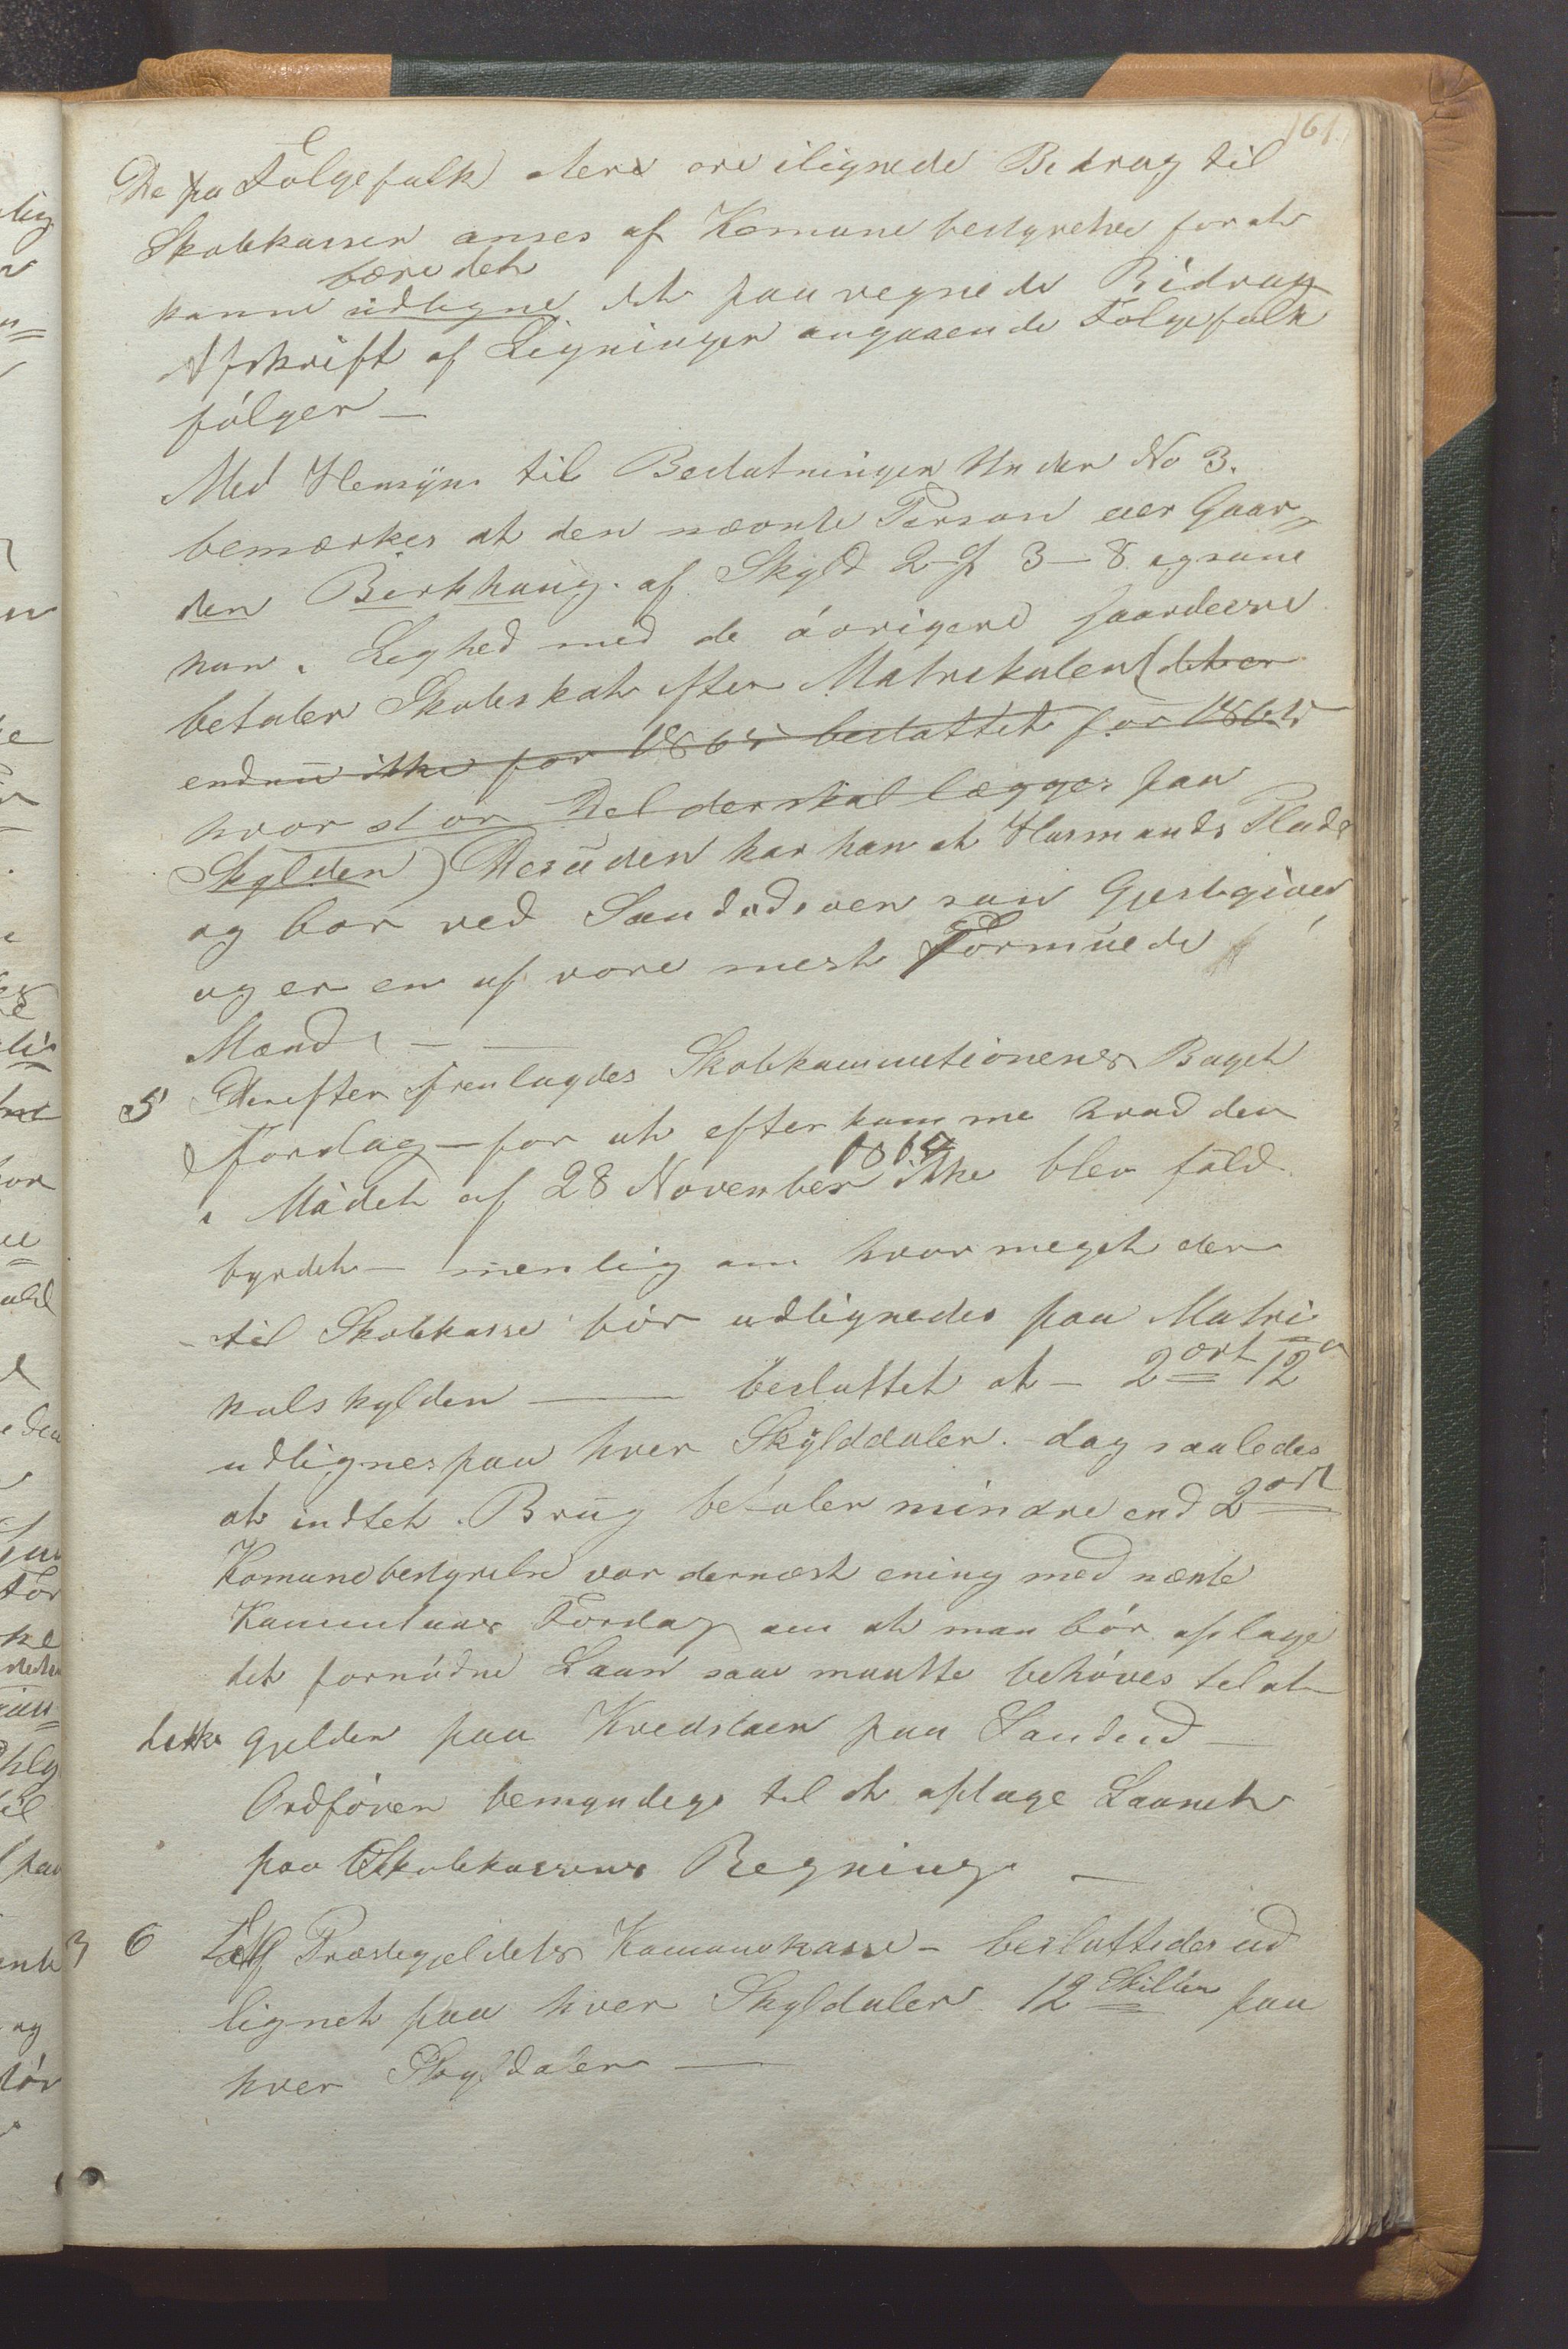 161.
De paa Folgefolk stere ere ilignede Bidrag til
Skolekassen anses af Komune bestyrelse for at
bære det
kunne udligne det paaregnede Bidrag
Afskrift af Ligningen angaaende Folgefolk
fólger —
Med Hensÿn til Beslutningen Under No 3.
bemærkes at den nævnte Person eier Gaar=
den Birkhaug. af Skyld 2 ₰ 3 - 8. og saae
han i Leghed med de óvrigere Gaardeere
betaler Skoleskat efter Matrekulen (det er
endnu ikke for 1865 besluttet for 1865
hvor stor Del der skal lægges paa
Skylden) Desuden har han et Husmands Plads
og bor ved Sandeidsveien som Gjestgiver
og er en af vore mest Formuede
Mænd —
5 Derefter fremlagdes Skolekommitionens Buget
Forslag — for at efter komme hvad der
1864
i Mødet af 28 November ikke blev fuld
byrdet — nemlig om hvor meget der
til Skolekasse bór udlignedes paa Matri
kulskylden — besluttet at — 2 ort 12 s
udlignes paa hver Skÿlddaler. dog saaledes
at indtet Brug betaler mindre end 2 ort
Komunebestyrelse var dernæst ening med nænte
Kommitions Forslag om at man bór optage
det fornódne Laan som maatte behóves til at
dække gjelden paa Kredslaen paa Sandeid —
Ordfóren bemyndeges til at optage Laanet
paa Skolekassens Regning —
6 Til Præstegjeldets Komunekasse — besluttedes ud
lignet paa hver Skyldaler 12 Skilling paa
hver Skyldaler —